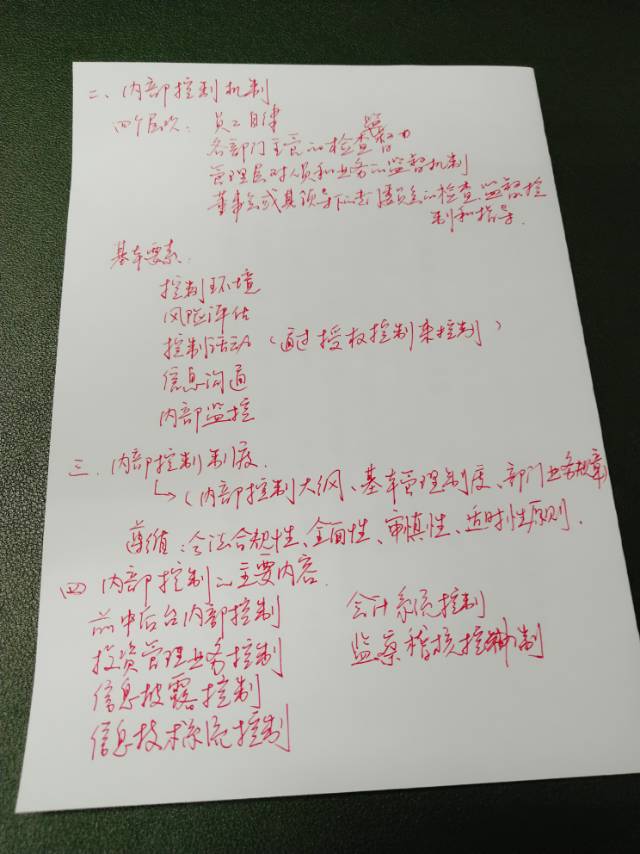 二、内部控制机制
四个层次：员工自律
各部门主管的检查监督
管理层对人员和业务的监督机制
董事会或其领导下的委员会的检查、监督、控
制和指导.
基本要素
控制环境
风险评估
控制活动（通过授权控制来控制）
信息沟通
内部监控
三.内部控制制度.
（内部控制大纲、基本管理制度、部门业务规章）
遵循：合法合规性、全面性、审慎性、适时性原则.
四 内部控制的主要内容.
前中后台内部控制
会计系统控制
投资管理业务控制
监察稽核控制
信息披露控制
信息技术系统控制